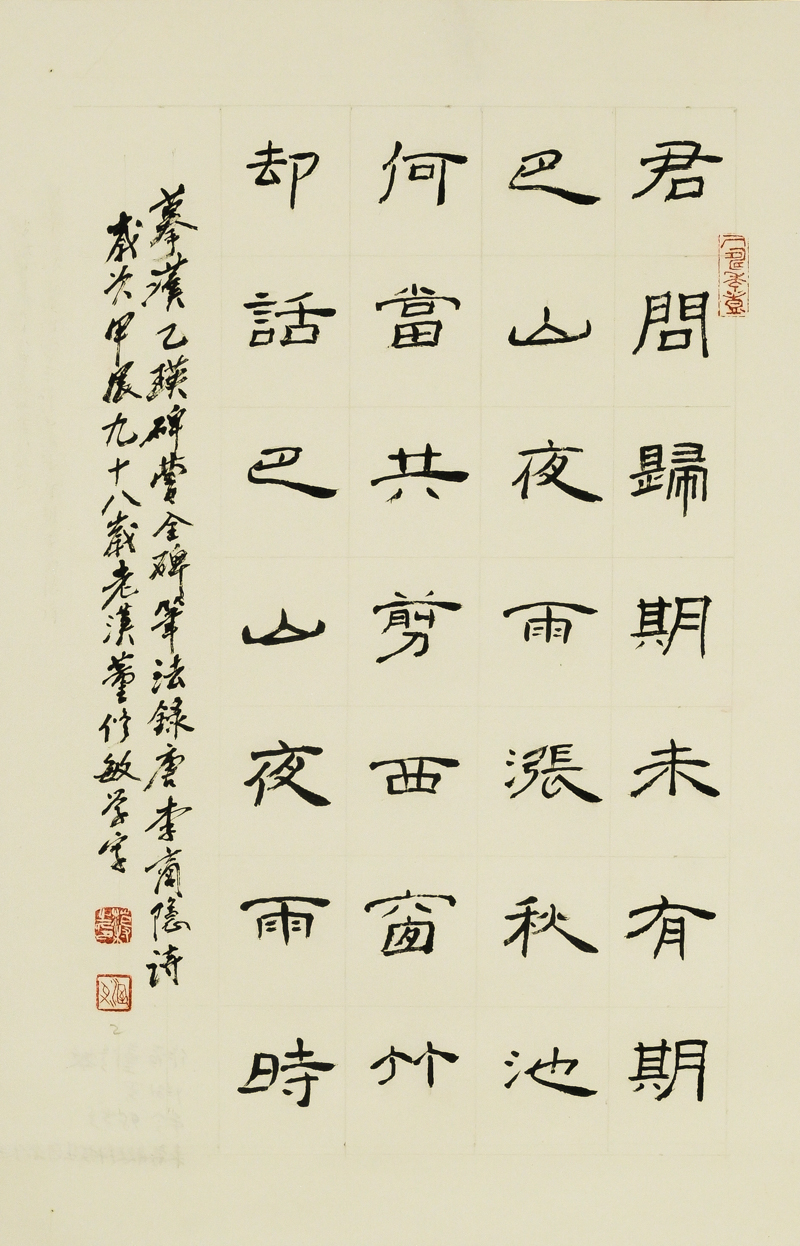 君問歸期未有期
巴山夜雨漲秋池
何當共剪西窗竹
却話巴山夜雨時
摹漢乙瑛碑嘗全碑筆法錄唐李商隱詩
歲次甲辰九十八歲老漢董修敏学字